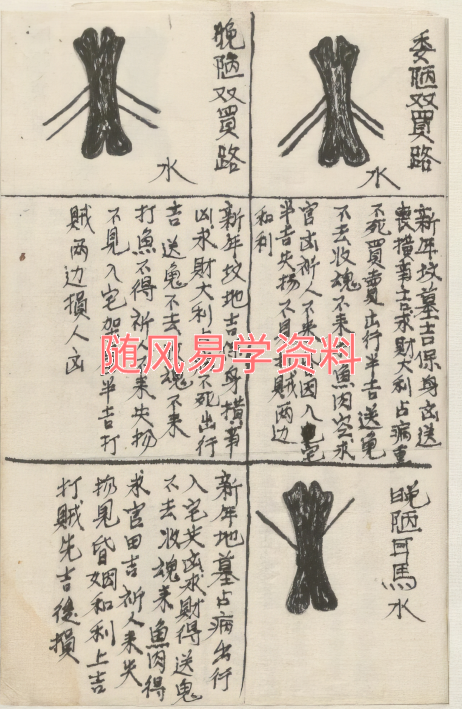 委陋双買路
水
新年坟墓吉保身凶送
喪横事吉求財大利占病重
不死買賣出行半吉送鬼
不去收魂不来魚肉空求
官凶祈人不来
入宅
半吉失物不見打賊两边
和利
晚陋双買路
水
新年坟地吉保身横事
凶求財大利占病不死出行
吉送鬼不去收魂不来
打魚不得祈人不来失物
不見入宅
半吉打
賊两边損人凶
晚陋耳馬水
新年地墓占病出行
入宅失凶求財得送鬼
不去收魂来魚肉得
求官田吉祈人来失
物見昏姻和利上吉
打賊先吉後損
随风易学资料